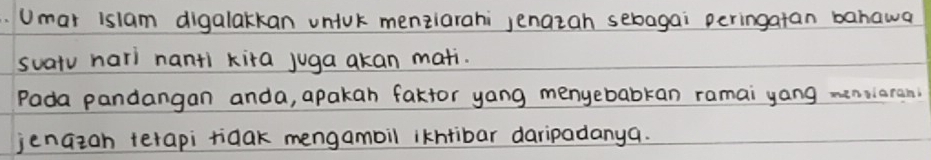 Umat Islam digalakkan untuk menziarahi jenazah sebagai peringatan bahawa
suatu hari nanti kita juga akan mati.
Pada pandangan anda, apakah faktor yang menyebabkan ramai yang menziarahi
jenazah tetapi tidak mengambil ikhtibar daripadanya.